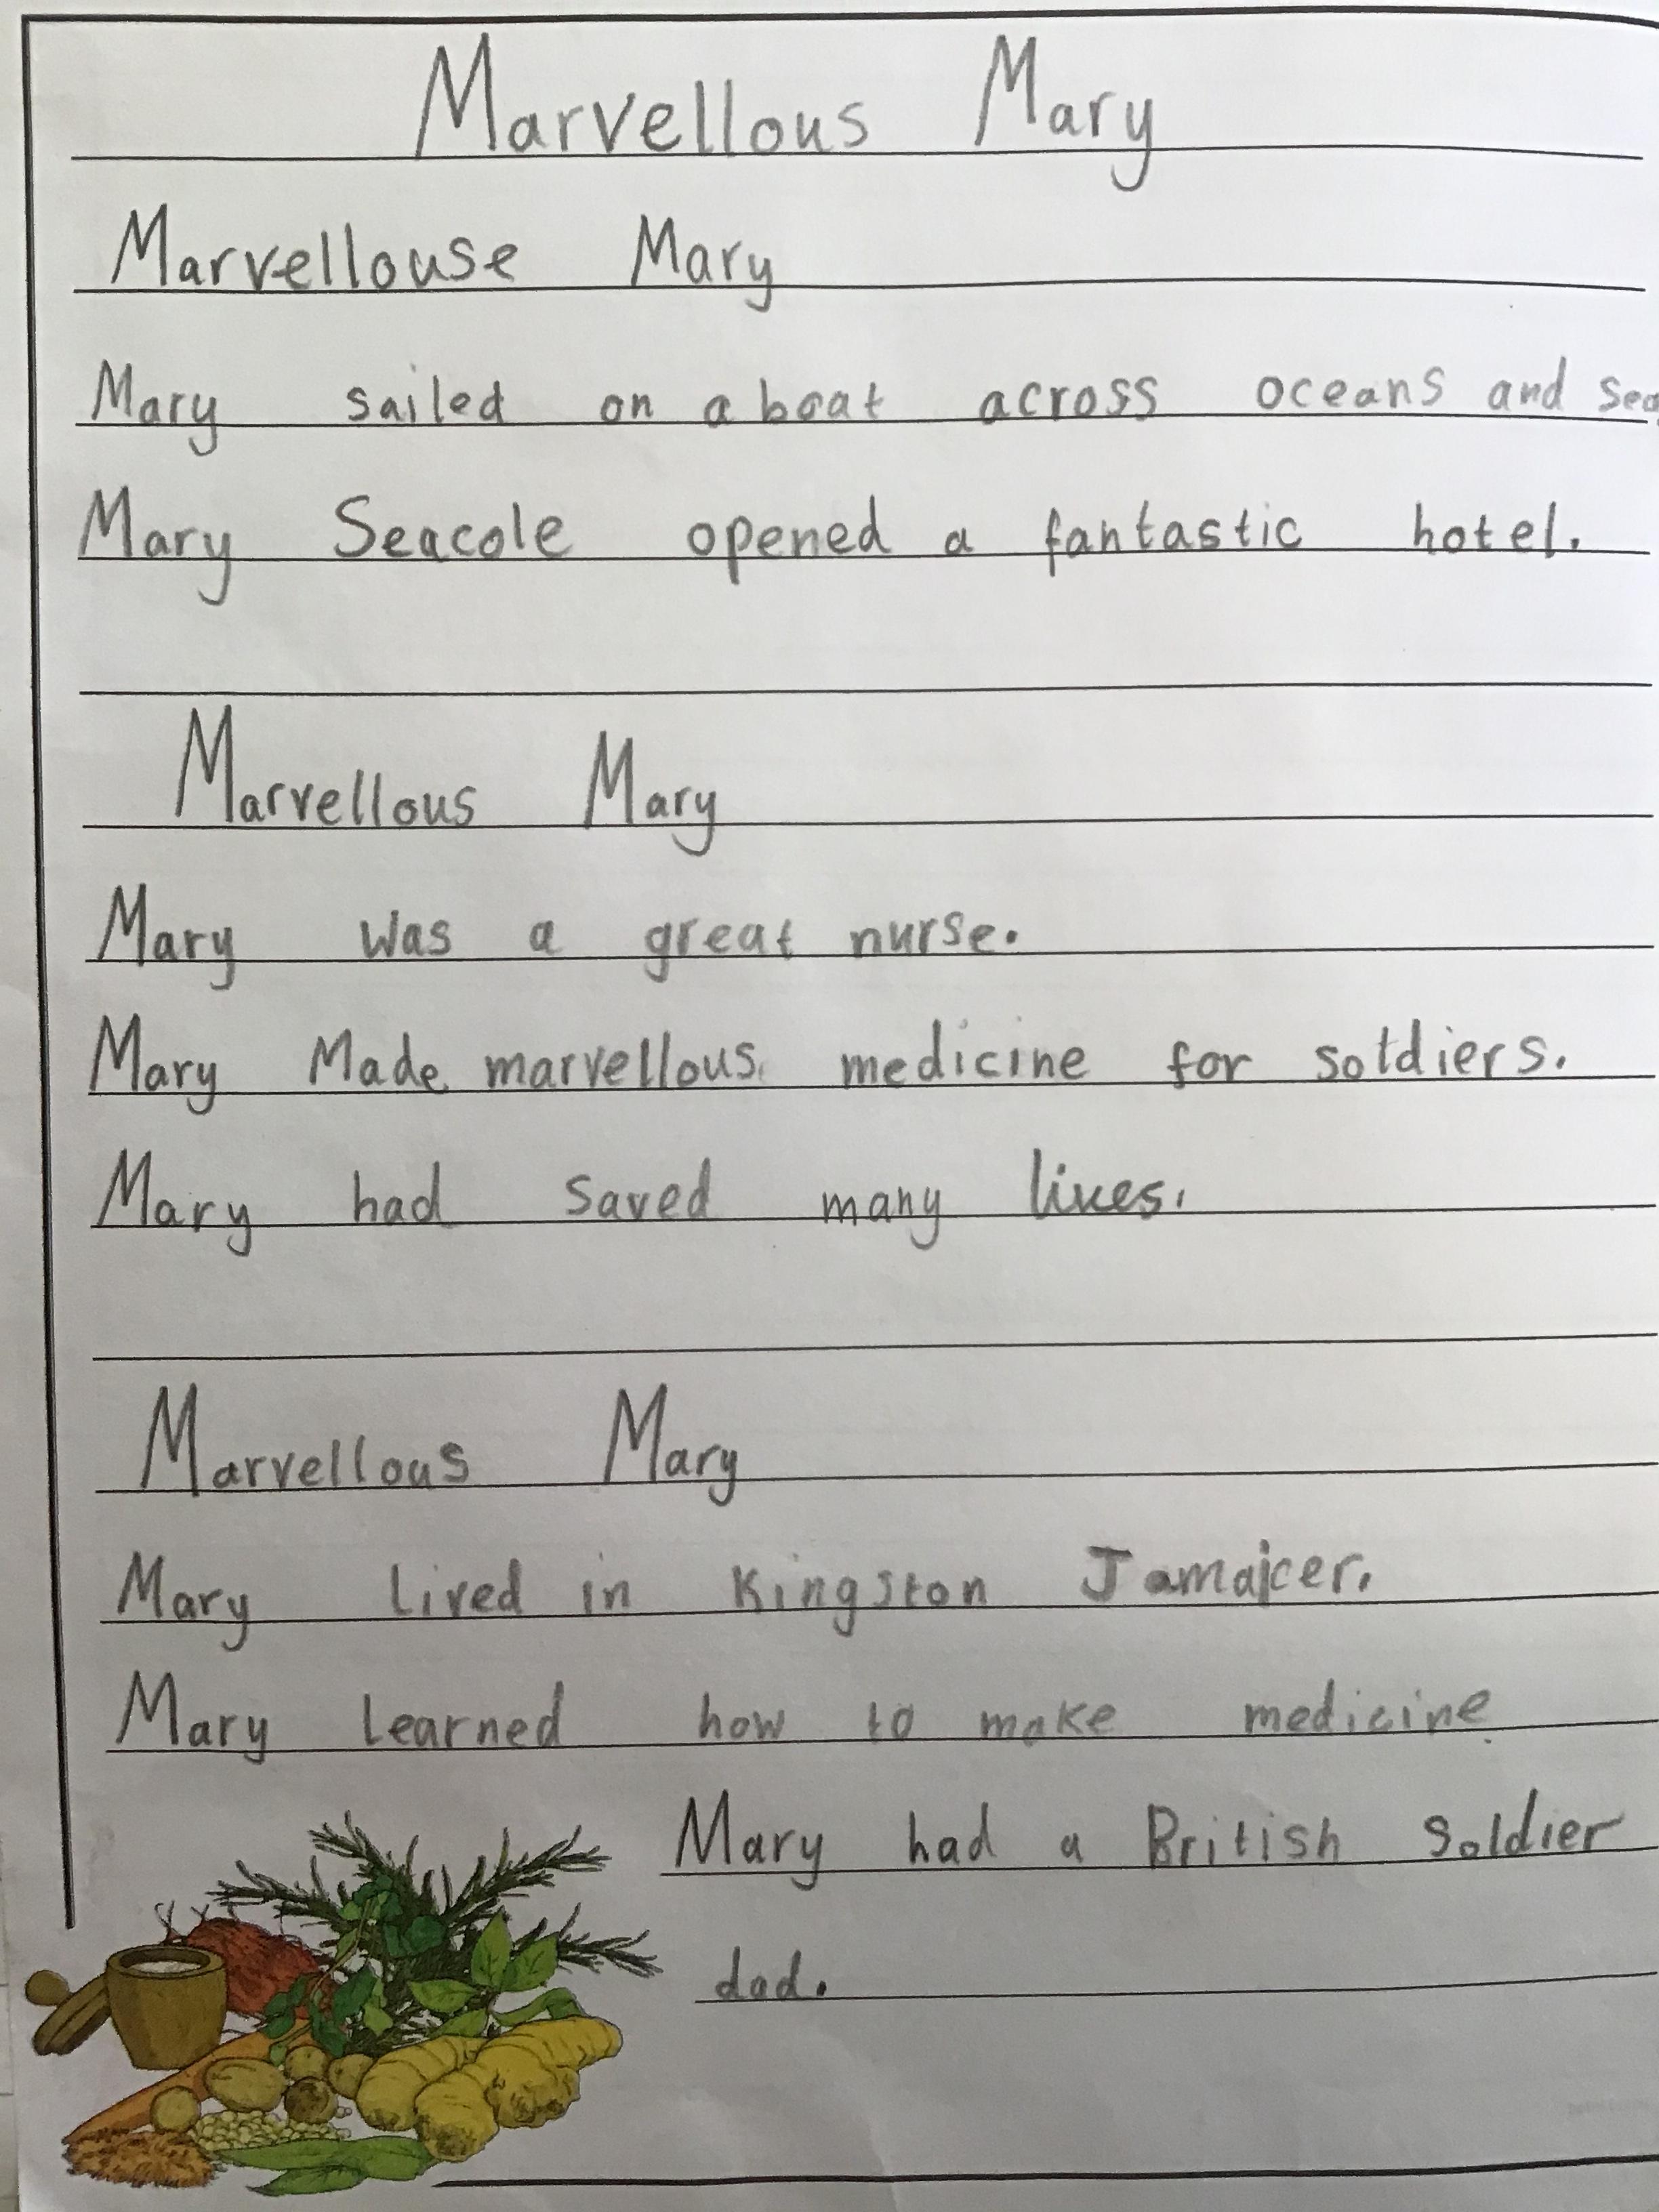 Marvellous Mary
Marvellouse Mary
Mary sailed on a boat across oceans and sea
Mary Seacole opened a fantastic hotel.
Marvellous Mary
Mary was a great nurse.
Mary Made marvellous medicine for soldiers.
Mary had saved many lives.
Marvellous Mary
Mary lived in Kingston Jamaicer.
Mary learned how to make medicine.
Mary had a British soldier
dad.